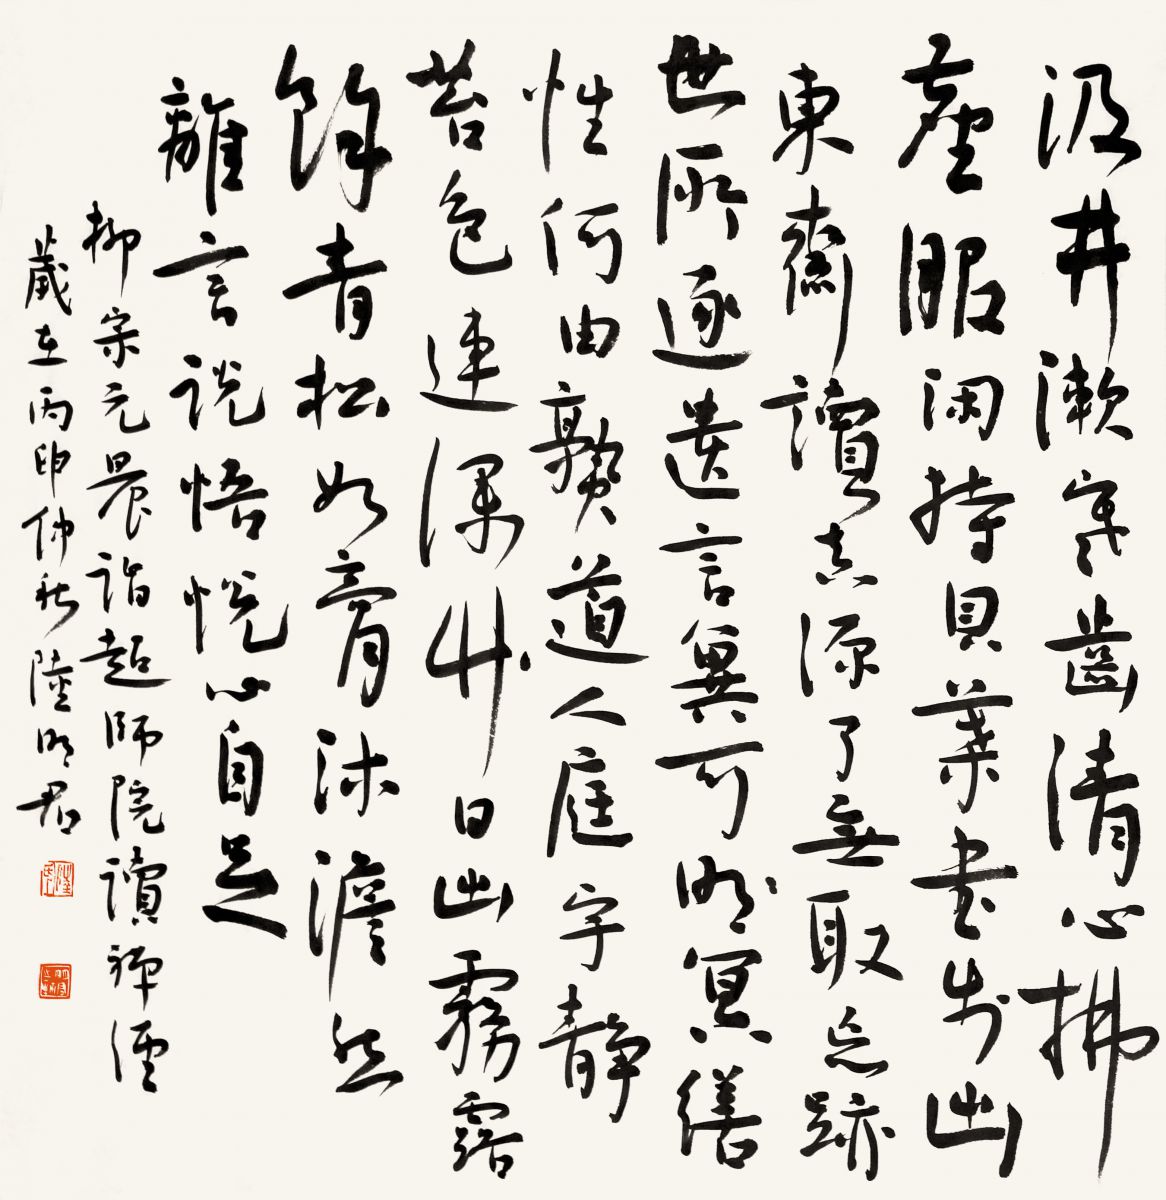 汲井漱寒齒清心拂
塵服閑持貝葉書步出
東齋讀真源了無取忘跡
世所逐遺言冀可明冥繕
性何由熟道人庭宇靜
苔色連深竹日出霧露
餘青松如膏沐澹然
離言說悟悅心自足
柳宗元晨詣超師院讀禪經
歲在丙申仲秋陸明君